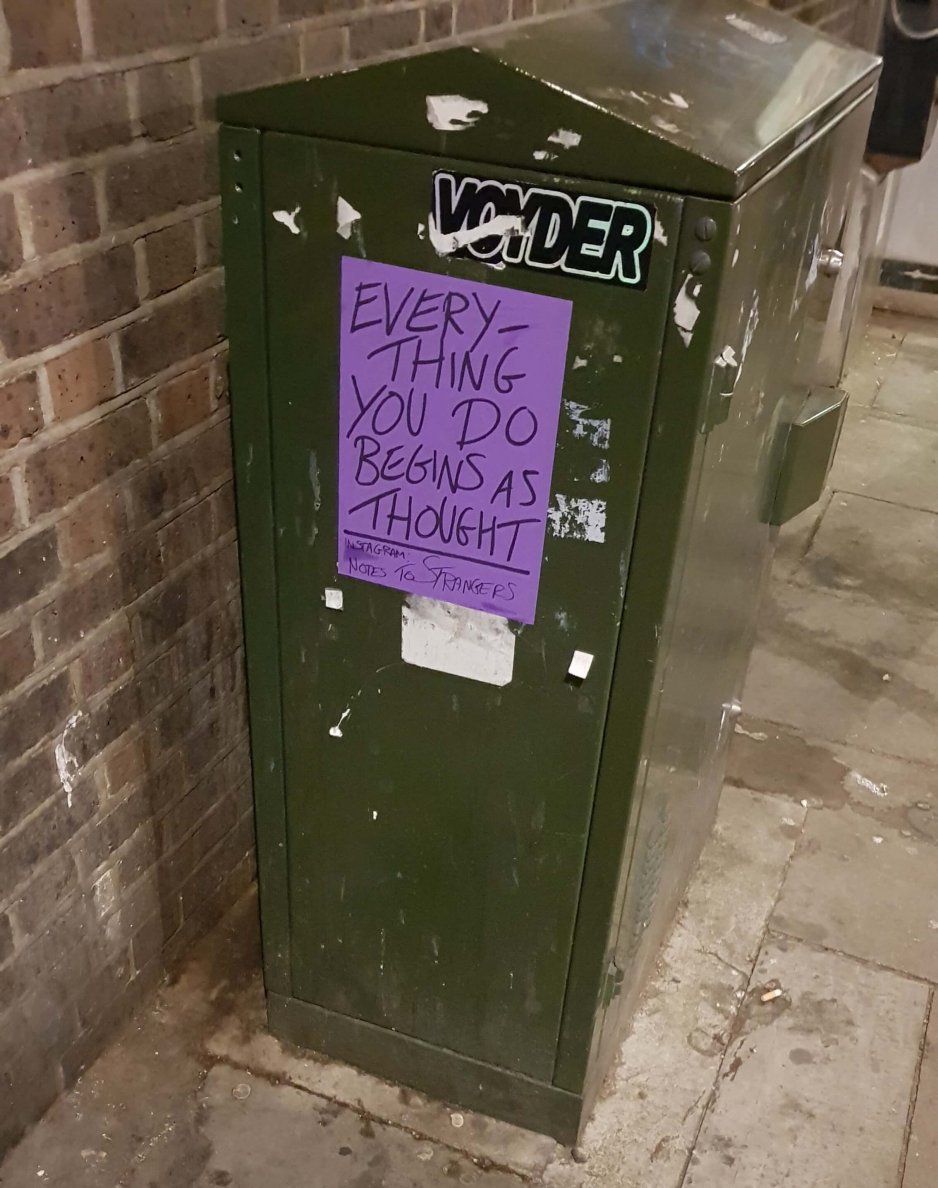 VOYDER
EVERY-
THING
YOU DO
BEGINS AS
THOUGHT
INSTAGRAM:
NOTES TO STRANGERS